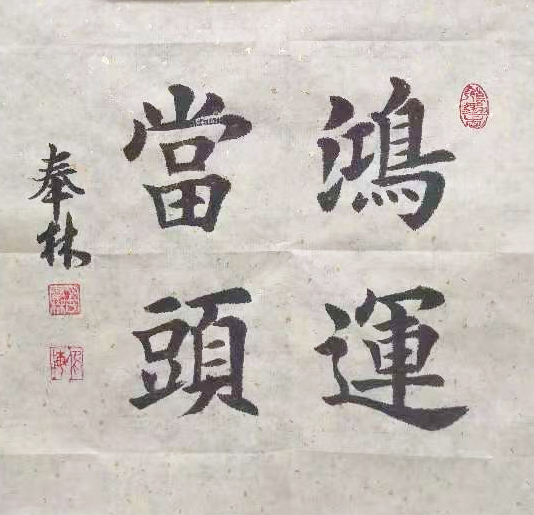 鴻運
當頭
奉林